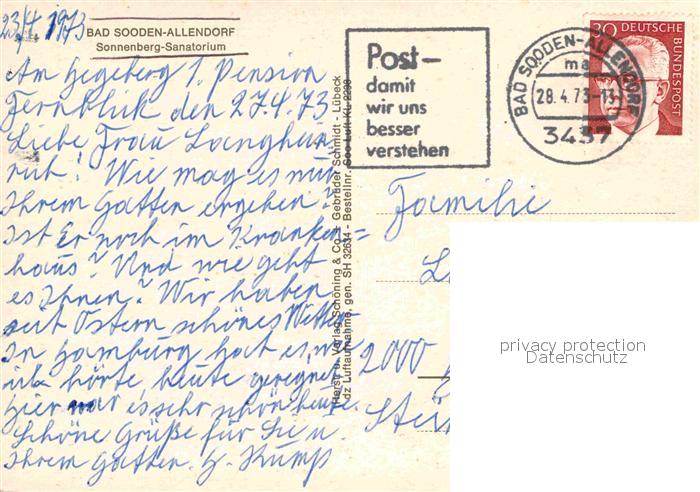 23/4 1973
BAD SOODEN-ALLENDORF
Sonnenberg-Sanatorium
Am Hegeberg 1. Pension
Fernblick den 27.4.73.
Liebe Frau
Wie mag es nur
Ihrem Gatten ergehen?
Ist Er noch im Kranken=
haus? Und wie geht
es Ihnen? Wir haben
seit Ostern schönes Wetter
In Hamburg hat es, wie
ich hörte heute geregnet
hier war es sehr schön heute.
Schöne Grüße für Sie u.
Ihrem Gatten. H. Kump
Herst. u. Verlag Schöning & Co + Gebrüder Schmidt - Lübeck
dz Luftaufnahme, gen. SH 32634 - Bestellnr. Soo Luft KL 9298
Post-
damit
wir uns
besser
verstehen
BAD SOODEN-ALLENDORF
ma
28.4.73-13
3437
30 DEUTSCHE
BUNDESPOST
Familie
L
2000
privacy protection
Datenschutz